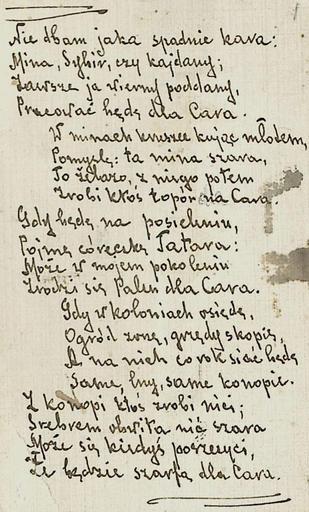 Nie dbam jaka spadnie kara:
Mina, Sybir, czy kajdany;
Zawsze ja wierny poddany,
Pracować będę dla Cara.
W minach kruszec kując młotem,
Pomyślę: ta mina szara,
To żelazo, z niego potem
Zrobi ktoś topór na Cara.
Gdy będę na posieleniu,
Pojmę córeczkę Tatara:
Może w mojem pokoleniu
Zrodzi się Palen dla Cara.
Gdy w koloniach osiędę,
Ogród zorzę, grzędy skopię,
A na nich co rok siać będę
Same lny, same konopie.
Z konopi ktoś zrobi nici;
Srebrem obwita nić szara
Może się kiedyś poszczyci,
Że będzie szarfą dla Cara.